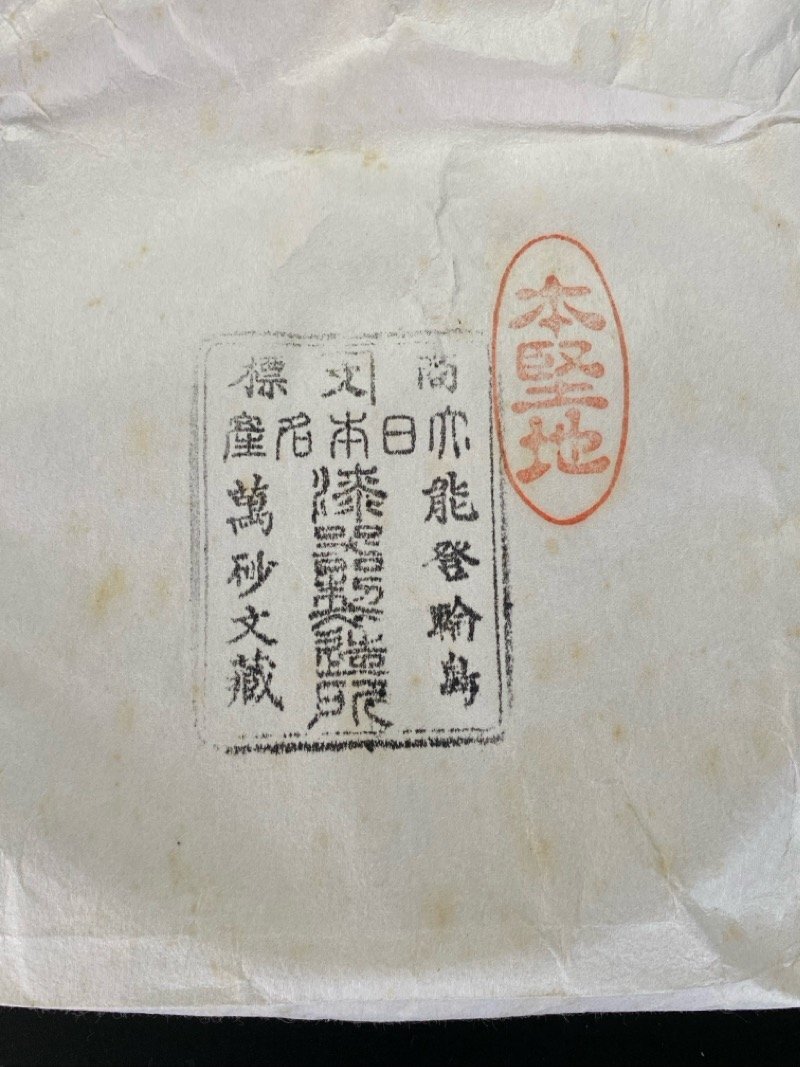 本堅地
商文標
大日本名産
能登輪島
漆器製造所
萬砂文藏